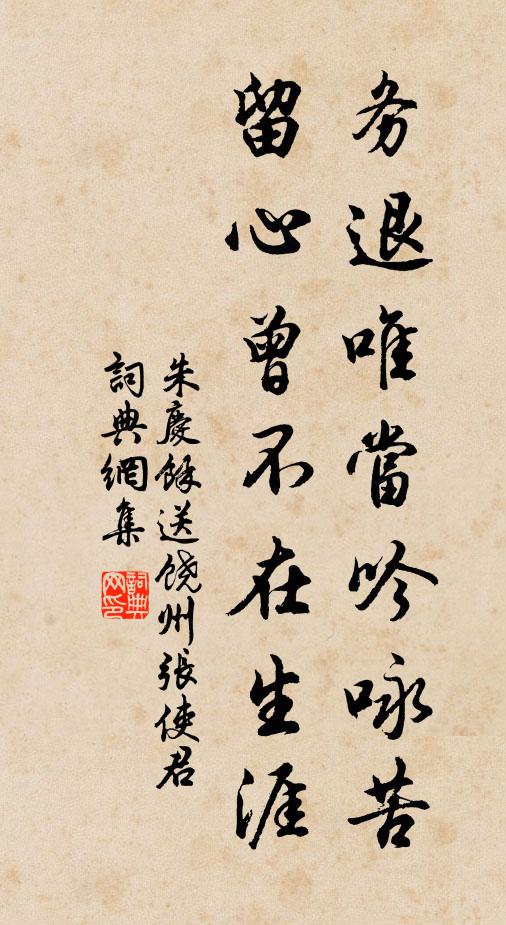 务退唯當吟咏苦
留心曾不在生涯
朱慶餘送饶州張使君
詞典網集
詞典網印